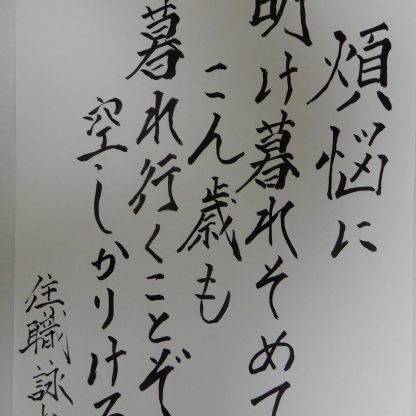 煩悩に
明け暮れそめて
こん歳も
暮れ行くことぞ
空しかりける
住職詠